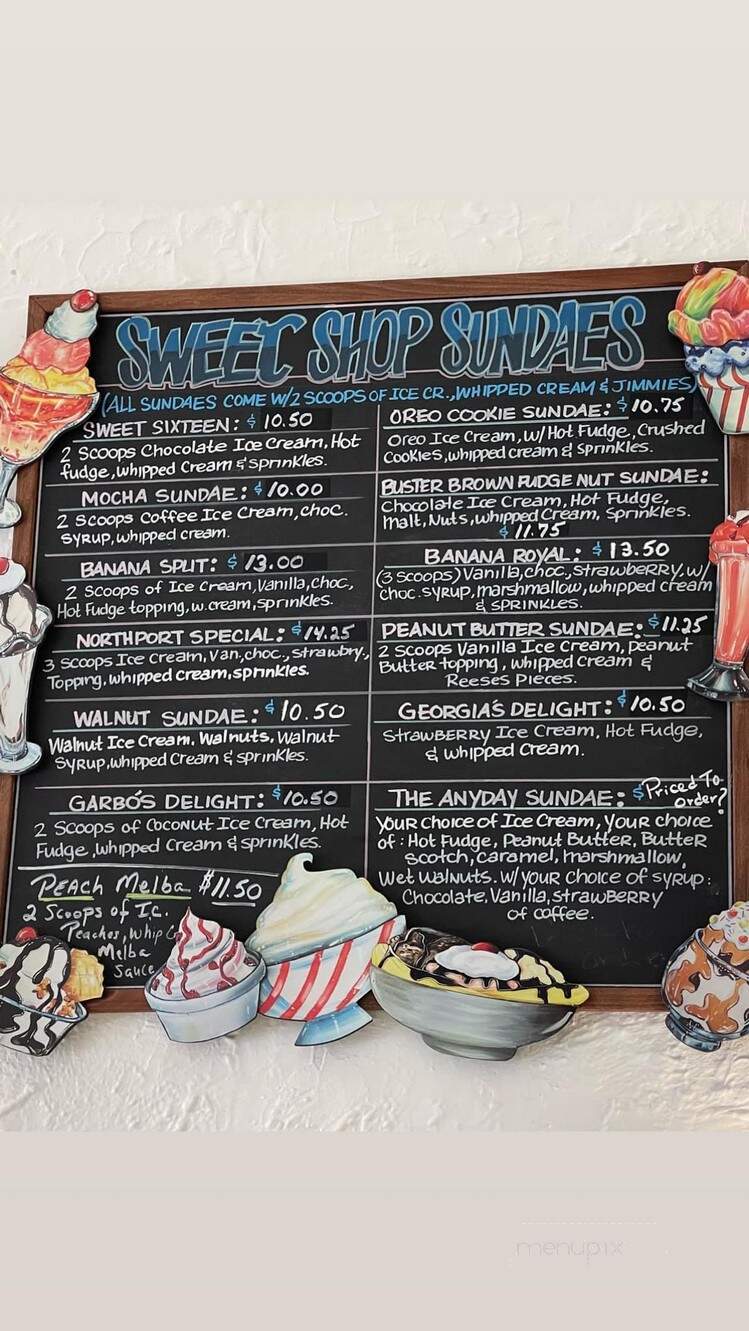 SWEET SHOP SUNDAES
(ALL SUNDAES COME W/2 SCOOPS OF ICE CR., WHIPPED CREAM & JIMMIES)
SWEET SIXTEEN: $10.50
2 Scoops Chocolate Ice Cream, Hot
fudge, whipped cream & sprinkles.
MOCHA SUNDAE: $10.00
2 Scoops Coffee Ice Cream, choc.
syrup, whipped cream.
BANANA SPLIT: $13.00
2 Scoops of Ice Cream, Vanilla, choc,
Hot Fudge topping, w. cream, sprinkles.
NORTHPORT SPECIAL: $14.25
3 Scoops Ice Cream, Van, choc., strawbry.,
Topping, whipped cream, sprinkles.
WALNUT SUNDAE: $10.50
Walnut Ice Cream, Walnuts, Walnut
Syrup, whipped cream & sprinkles.
GARBO'S DELIGHT: $10.50
2 Scoops of Coconut Ice Cream, Hot
Fudge, whipped cream & sprinkles.
PEACH Melba $11.50
2 Scoops of Ic.
Peaches, Whip
Melba
Sauce
OREO COOKIE SUNDAE: $10.75
Oreo Ice Cream, w/Hot Fudge, Crushed
Cookies, whipped cream & Sprinkles.
BUSTER BROWN FUDGE NUT SUNDAE:
Chocolate Ice Cream, Hot Fudge,
malt, Nuts, whipped Cream, Sprinkles.
$11.75
BANANA ROYAL: $13.50
(3 Scoops) Vanilla, choc., Strawberry, w/
choc. syrup, marshmallow, whipped cream
& SPRINKLES.
PEANUT BUTTER SUNDAE: $11.25
2 Scoops Vanilla Ice Cream, peanut
Butter topping, whipped cream &
Reeses Pieces.
GEORGIA'S DELIGHT: $10.50
Strawberry Ice Cream, Hot Fudge,
& whipped cream.
THE ANYDAY SUNDAE: $Priced To
order?
Your choice of Ice Cream, your choice
of: Hot Fudge, Peanut Butter, Butter
Scotch, Caramel, marshmallow,
Wet Walnuts. w/your choice of syrup:
Chocolate, Vanilla, strawberry
of coffee.
menupix